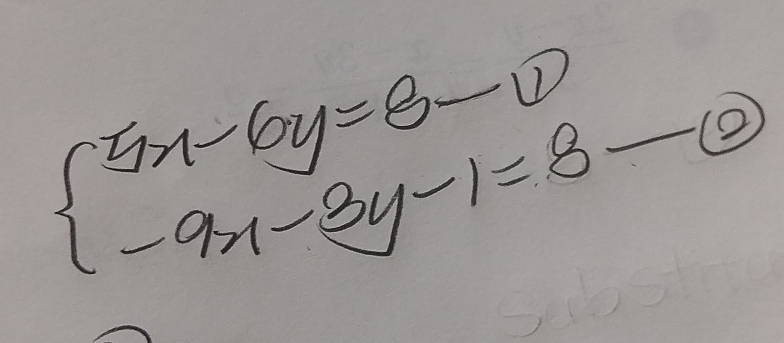 5x-6y=8-①
-9x-3y-1=8-②